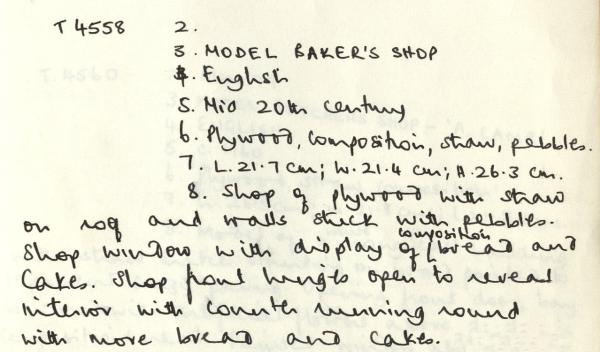 T 4558 2.
3. MODEL BAKER'S SHOP
4. English
5. Mid 20th century
6. Plywood, composition, straw, pebbles.
7. L. 21.7 cm; W. 21.4 cm; H. 26.3 cm.
8. Shop of plywood with straw
on roof and walls stuck with pebbles.
Shop window with display of composition bread and
Cakes. Shop front hinges open to reveal
interior with counter running round
with more bread and cakes.